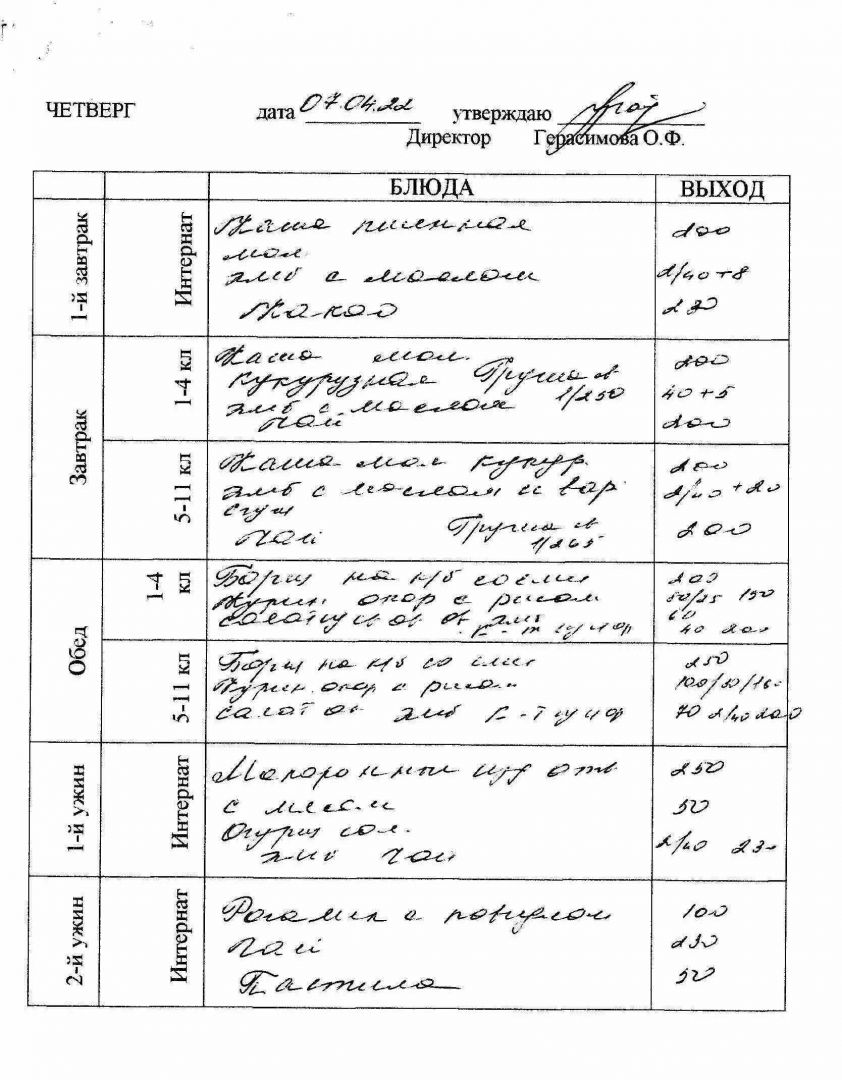 ЧЕТВЕРГ дата 07.04.22 утверждаю
Директор Герасимова О.Ф.
БЛЮДА ВЫХОД
1-й завтрак Интернат
Каша пшенная 200
мол.
хлеб с маслом 2/40+8
Какао 230
Завтрак
1-4 кл
Каша мол. 200
кукурузная Груша св 1/250
хлеб с маслом 40+5
чай 200
5-11 кл
Каша мол кукур. 200
хлеб с маслом и вар 2/40+20
сгущ
чай Груша св 1/265 200
Обед
1-4 кл
Борщ на к/б со смет 200
Курин. окор с рисом 50/25 150
салат из св ов хлеб 60
к-т цитр 40 200
5-11 кл
Борщ на к/б со смет 250
Курин. окор с рисом 100/50/
салат ов хлеб к-т цитр 70 2/40 200
1-й ужин Интернат
Макаронные изд отв 250
с мясом 50
Огурец сол.
хлеб чай 2/40 230
2-й ужин Интернат
Рогалик с повидлом 100
чай 230
Пастила 50